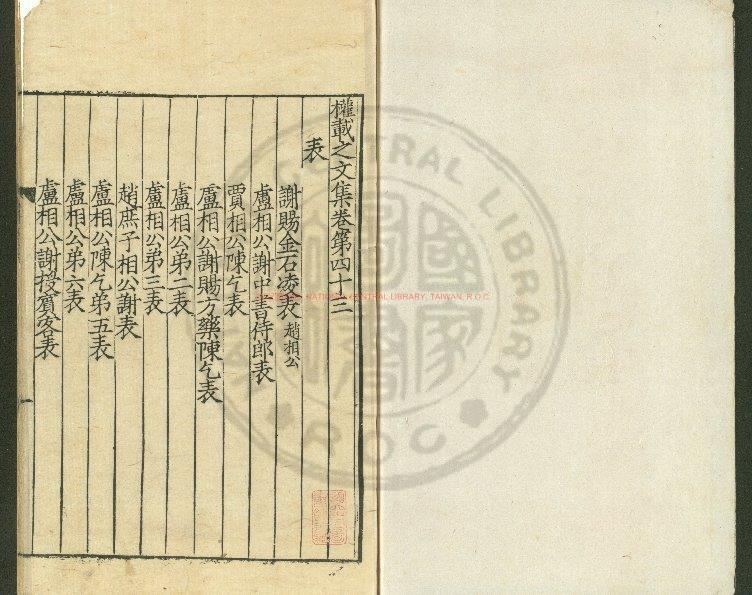 權載之文集卷第四十三
表
謝賜金石凌表趙相公
盧相公謝中書侍郎表
賈相公陳乞表
盧相公謝賜方藥陳乞表
盧相公第二表
盧相公弟三表
趙庶子相公謝表
盧相公陳乞弟五表
盧相公弟六表
盧相公謝授賓客表
NATIONAL CENTRAL LIBRARY, TAIWAN, R.O.C.
CENTRAL LIBRARY
ROC
國家圖書館